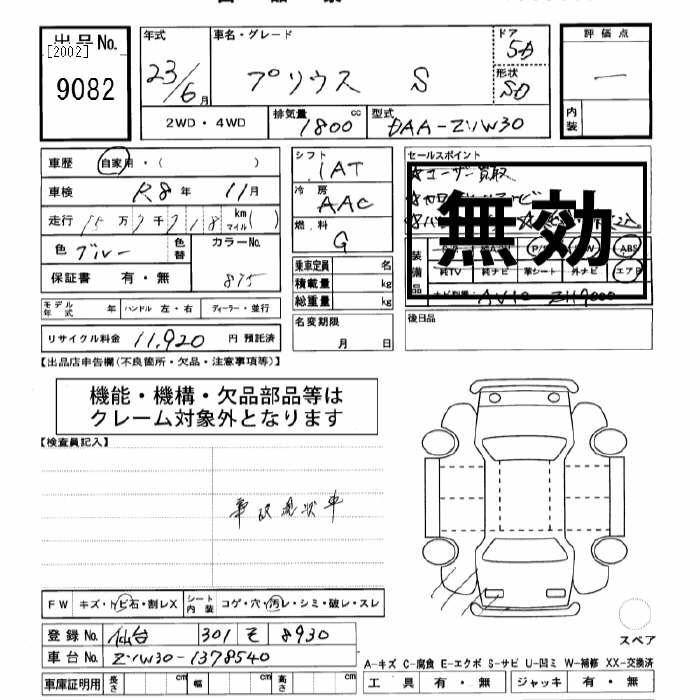 出品No.
[2002]
9082
年式
23/6月
車名・グレード
プリウス S
ドア
5D
形状
SD
評価点
一
内装
2WD・4WD
排気量 1800 cc
型式 DAA-ZVW30
車歴 自家用・( )
車検 R8年 11月
走行 万 千 km マイル ( )
色 ブルー 色替 カラーNo. 875
保証書 有・無
シフト IAT
冷房 AAC
燃料 G
乗車定員 名
積載量 kg
総重量 kg
セールスポイント
無効
装備品
ABS
純TV 純ナビ 革シート 外ナビ エアB
モデル年式 年 ハンドル 左・右 ディーラー・並行
名変期限 月 日
後日品
リサイクル料金 11,920 円 預託済
【出品店申告欄(不良箇所・欠品・注意事項等)】
機能・機構・欠品部品等は
クレーム対象外となります
【検査員記入】
事故現状車
FW キズ・トビ石・割レX シート内装 コゲ・穴・汚レ・シミ・破レ・スレ
登録No. 仙台 301 モ 8930
車台No. ZVW30-1378540
車庫証明用 長さ cm 幅 cm 高さ cm
スペア
A-キズ C-腐食 E-エクボ S-サビ U-凹ミ W-補修 XX-交換済
工具 有・無 ジャッキ 有・無